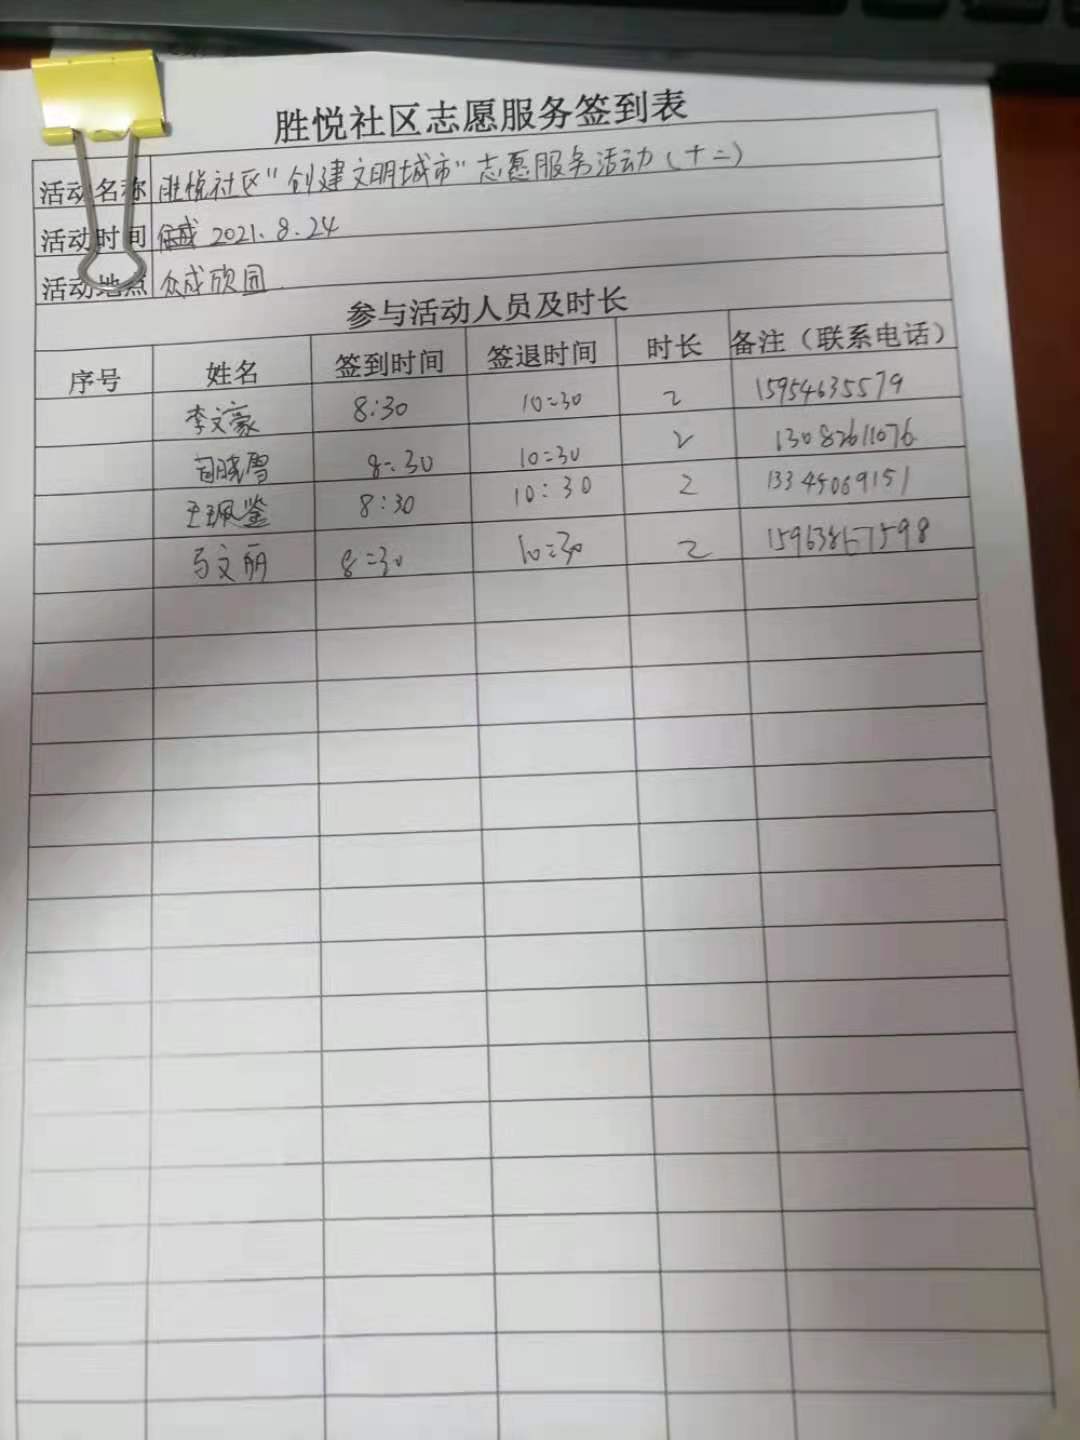 胜悦社区志愿服务签到表
活动名称 胜悦社区"创建文明城市"志愿服务活动(十二)
活动时间 2021.8.24
活动地点 众成颀园
参与活动人员及时长
序号 姓名 签到时间 签退时间 时长 备注（联系电话）
李文豪 8:30 10:30 2 15954635579
晓雪 8:30 10:30 2 13082611076
王珮鉴 8:30 10:30 2 13345069151
马文丽 8:30 10:30 2 15963867598